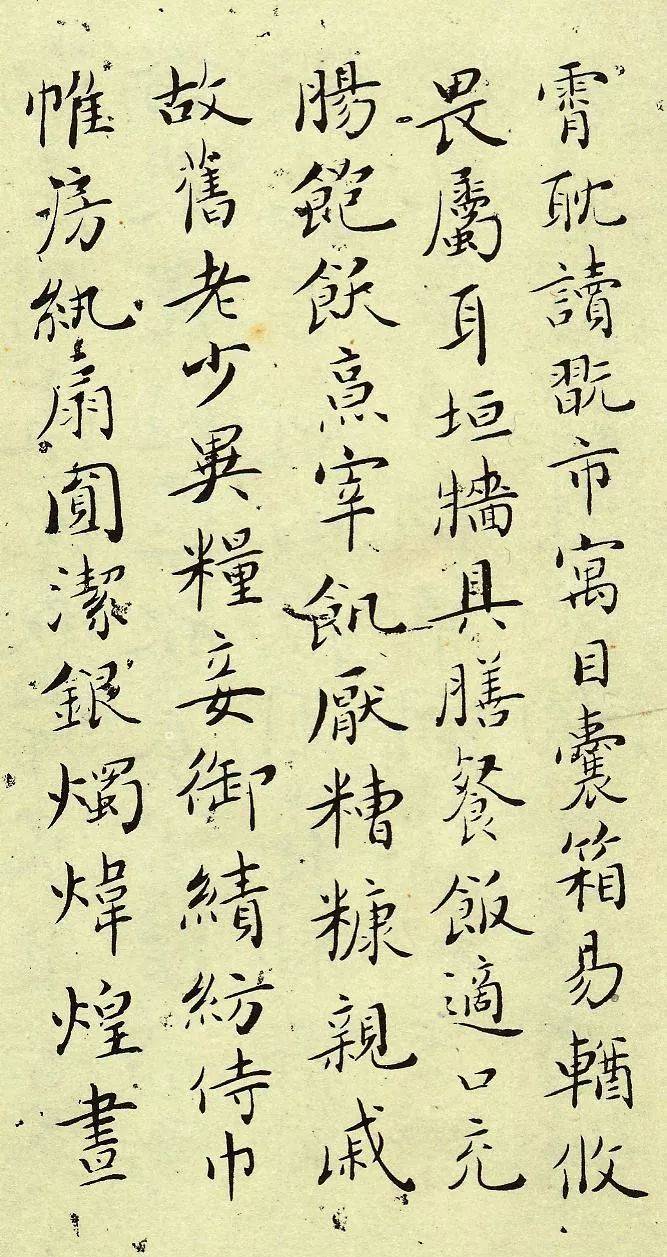 霄耽讀翫市寓目囊箱易輶攸
畏屬耳垣牆具膳餐飯適口充
腸飽飫烹宰飢厭糟糠親戚
故舊老少異糧妾御績紡侍巾
帷房紈扇圓潔銀燭煒煌晝